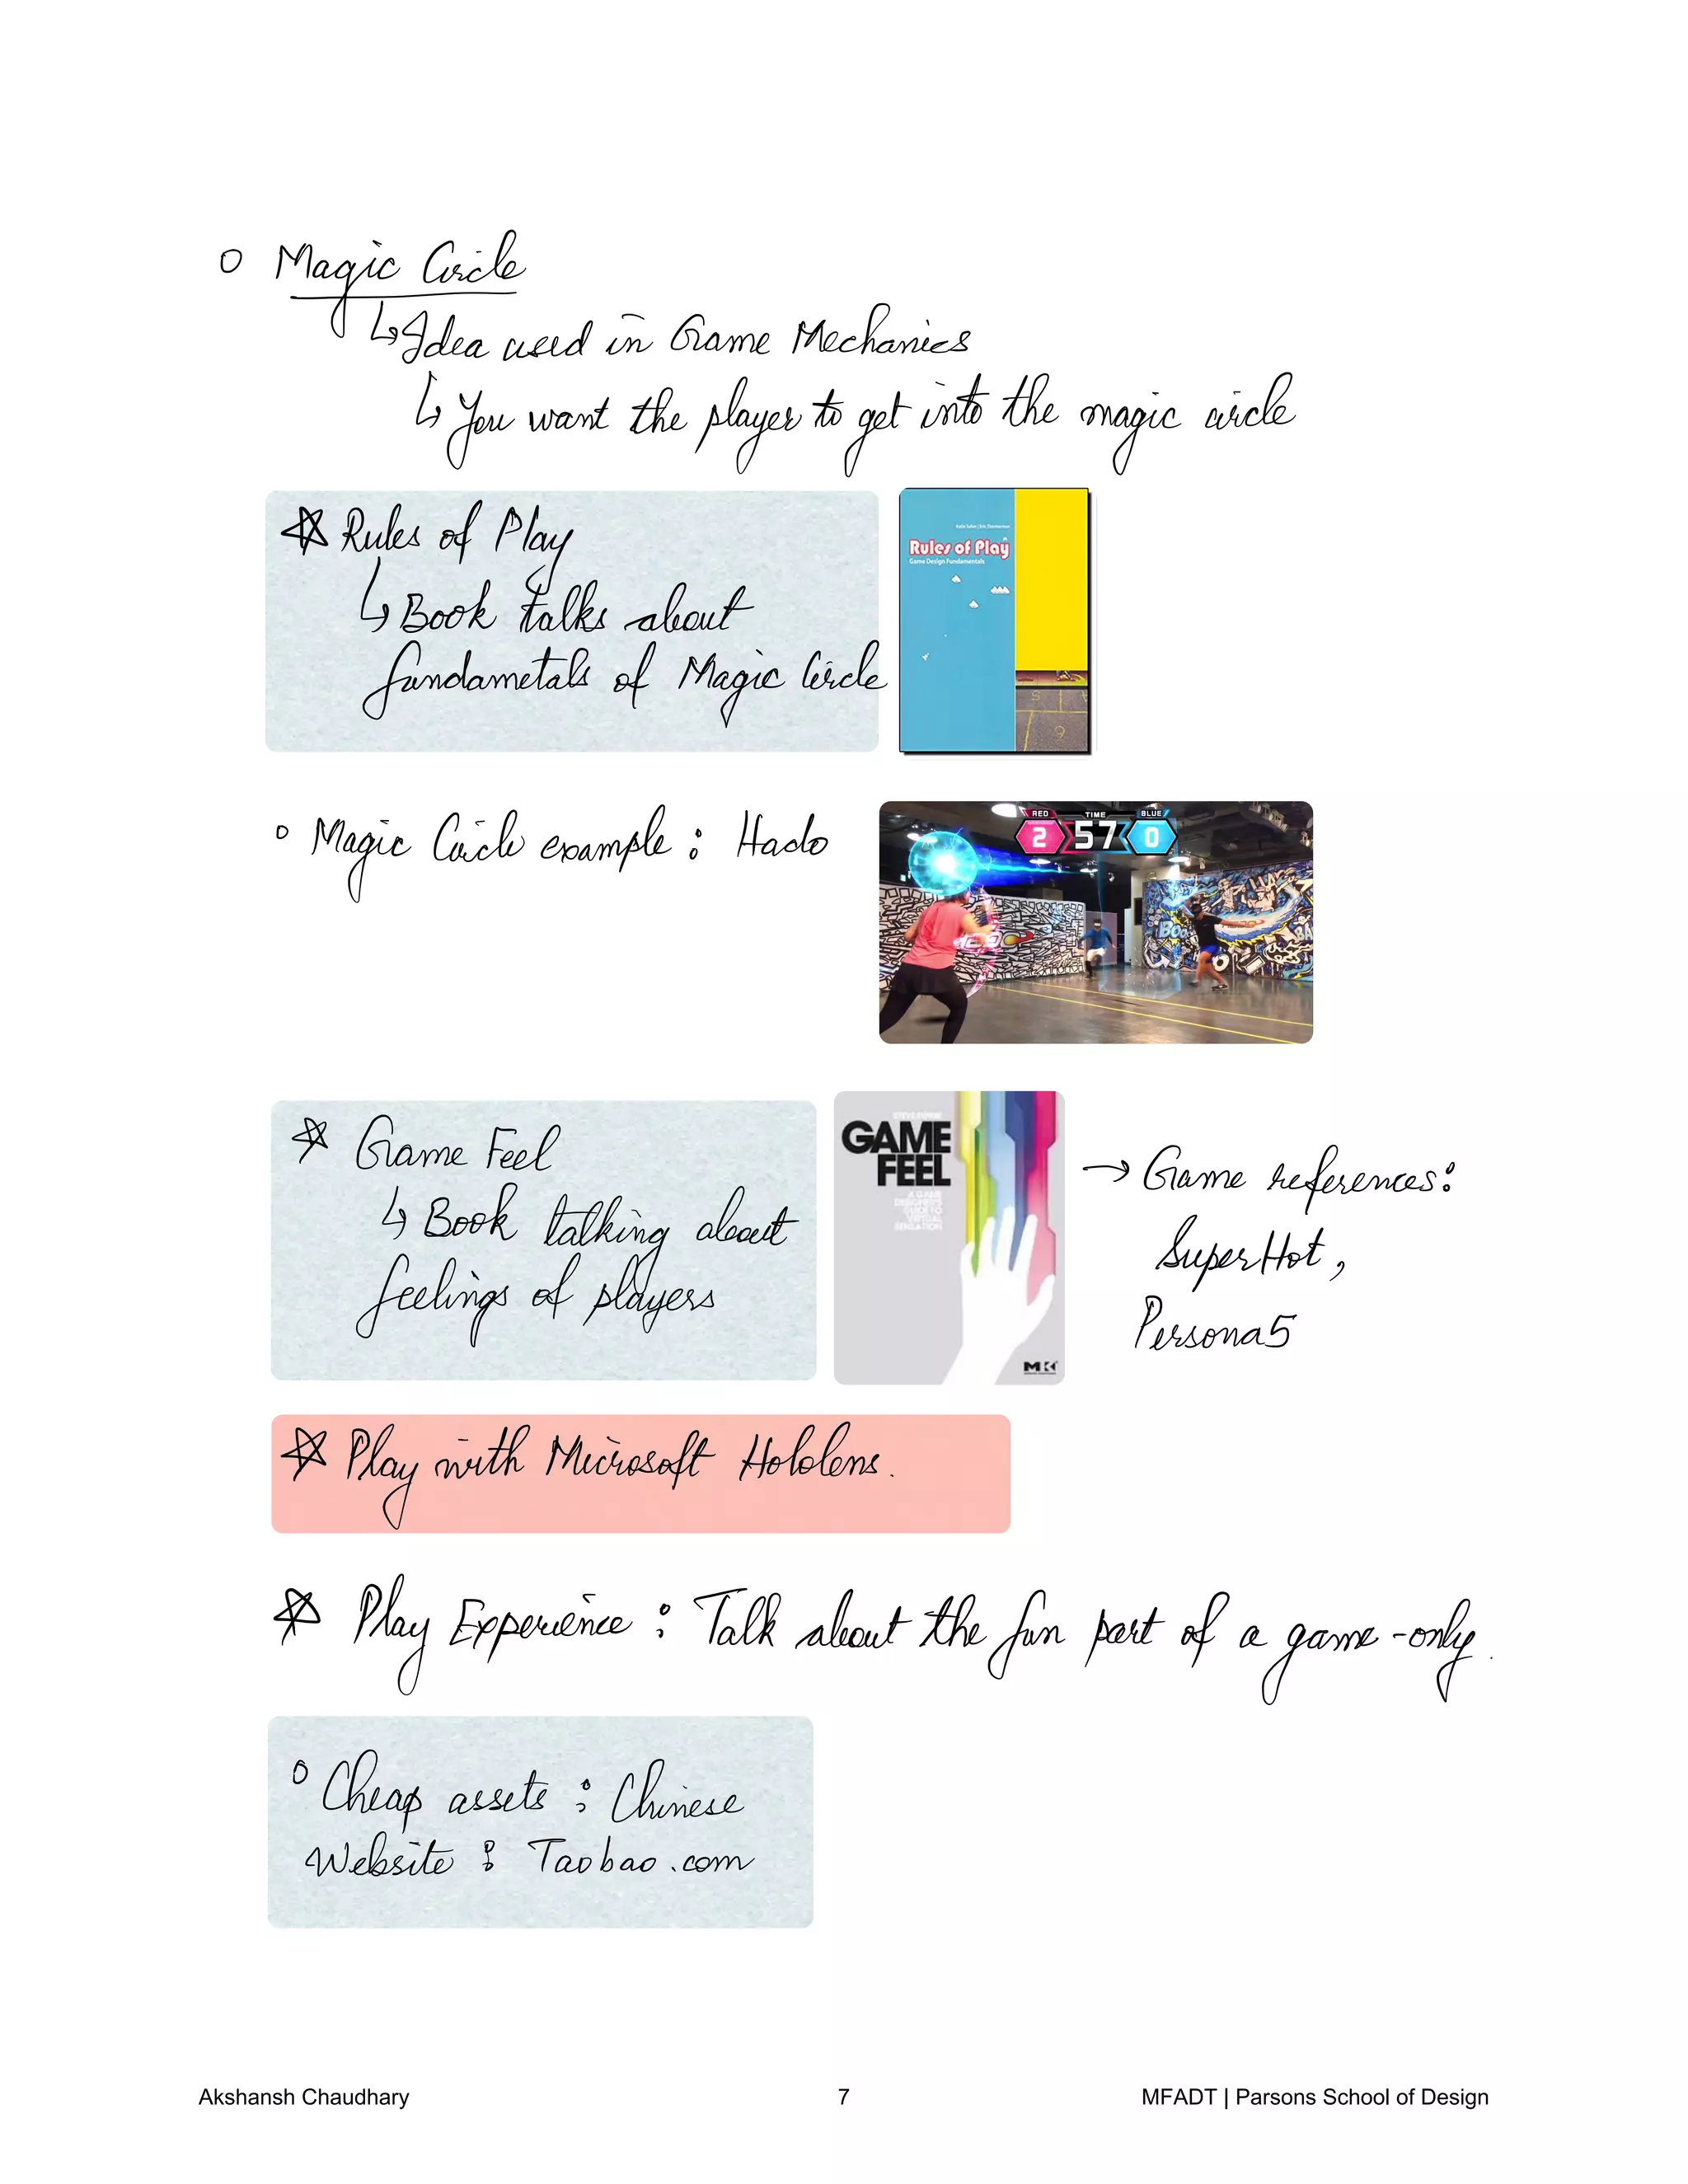 Magic Circle
↳ Idea used in Game Mechanics
↳ You want the player to get into the magic circle
☆ Rules of Play
↳ Book talks about
fundametals of Magic Circle
Katie Salen | Eric Zimmerman
Rules of Play
Game Design Fundamentals
Magic Circle example: Hado
RED TIME BLUE
2 57 0
BOO
☆ Game Feel
↳ Book talking about
feelings of players
STEVE SWINK
GAME
FEEL
A GAME
DESIGNER'S
GUIDE TO
VIRTUAL
SENSATION
MK
→ Game references:
SuperHot,
Persona5
☆ Play with Microsoft Hololens.
☆ Play Experience: Talk about the fun part of a game-only.
Cheap assets: Chinese
Website: Taobao.com
Akshansh Chaudhary 7 MFADT | Parsons School of Design